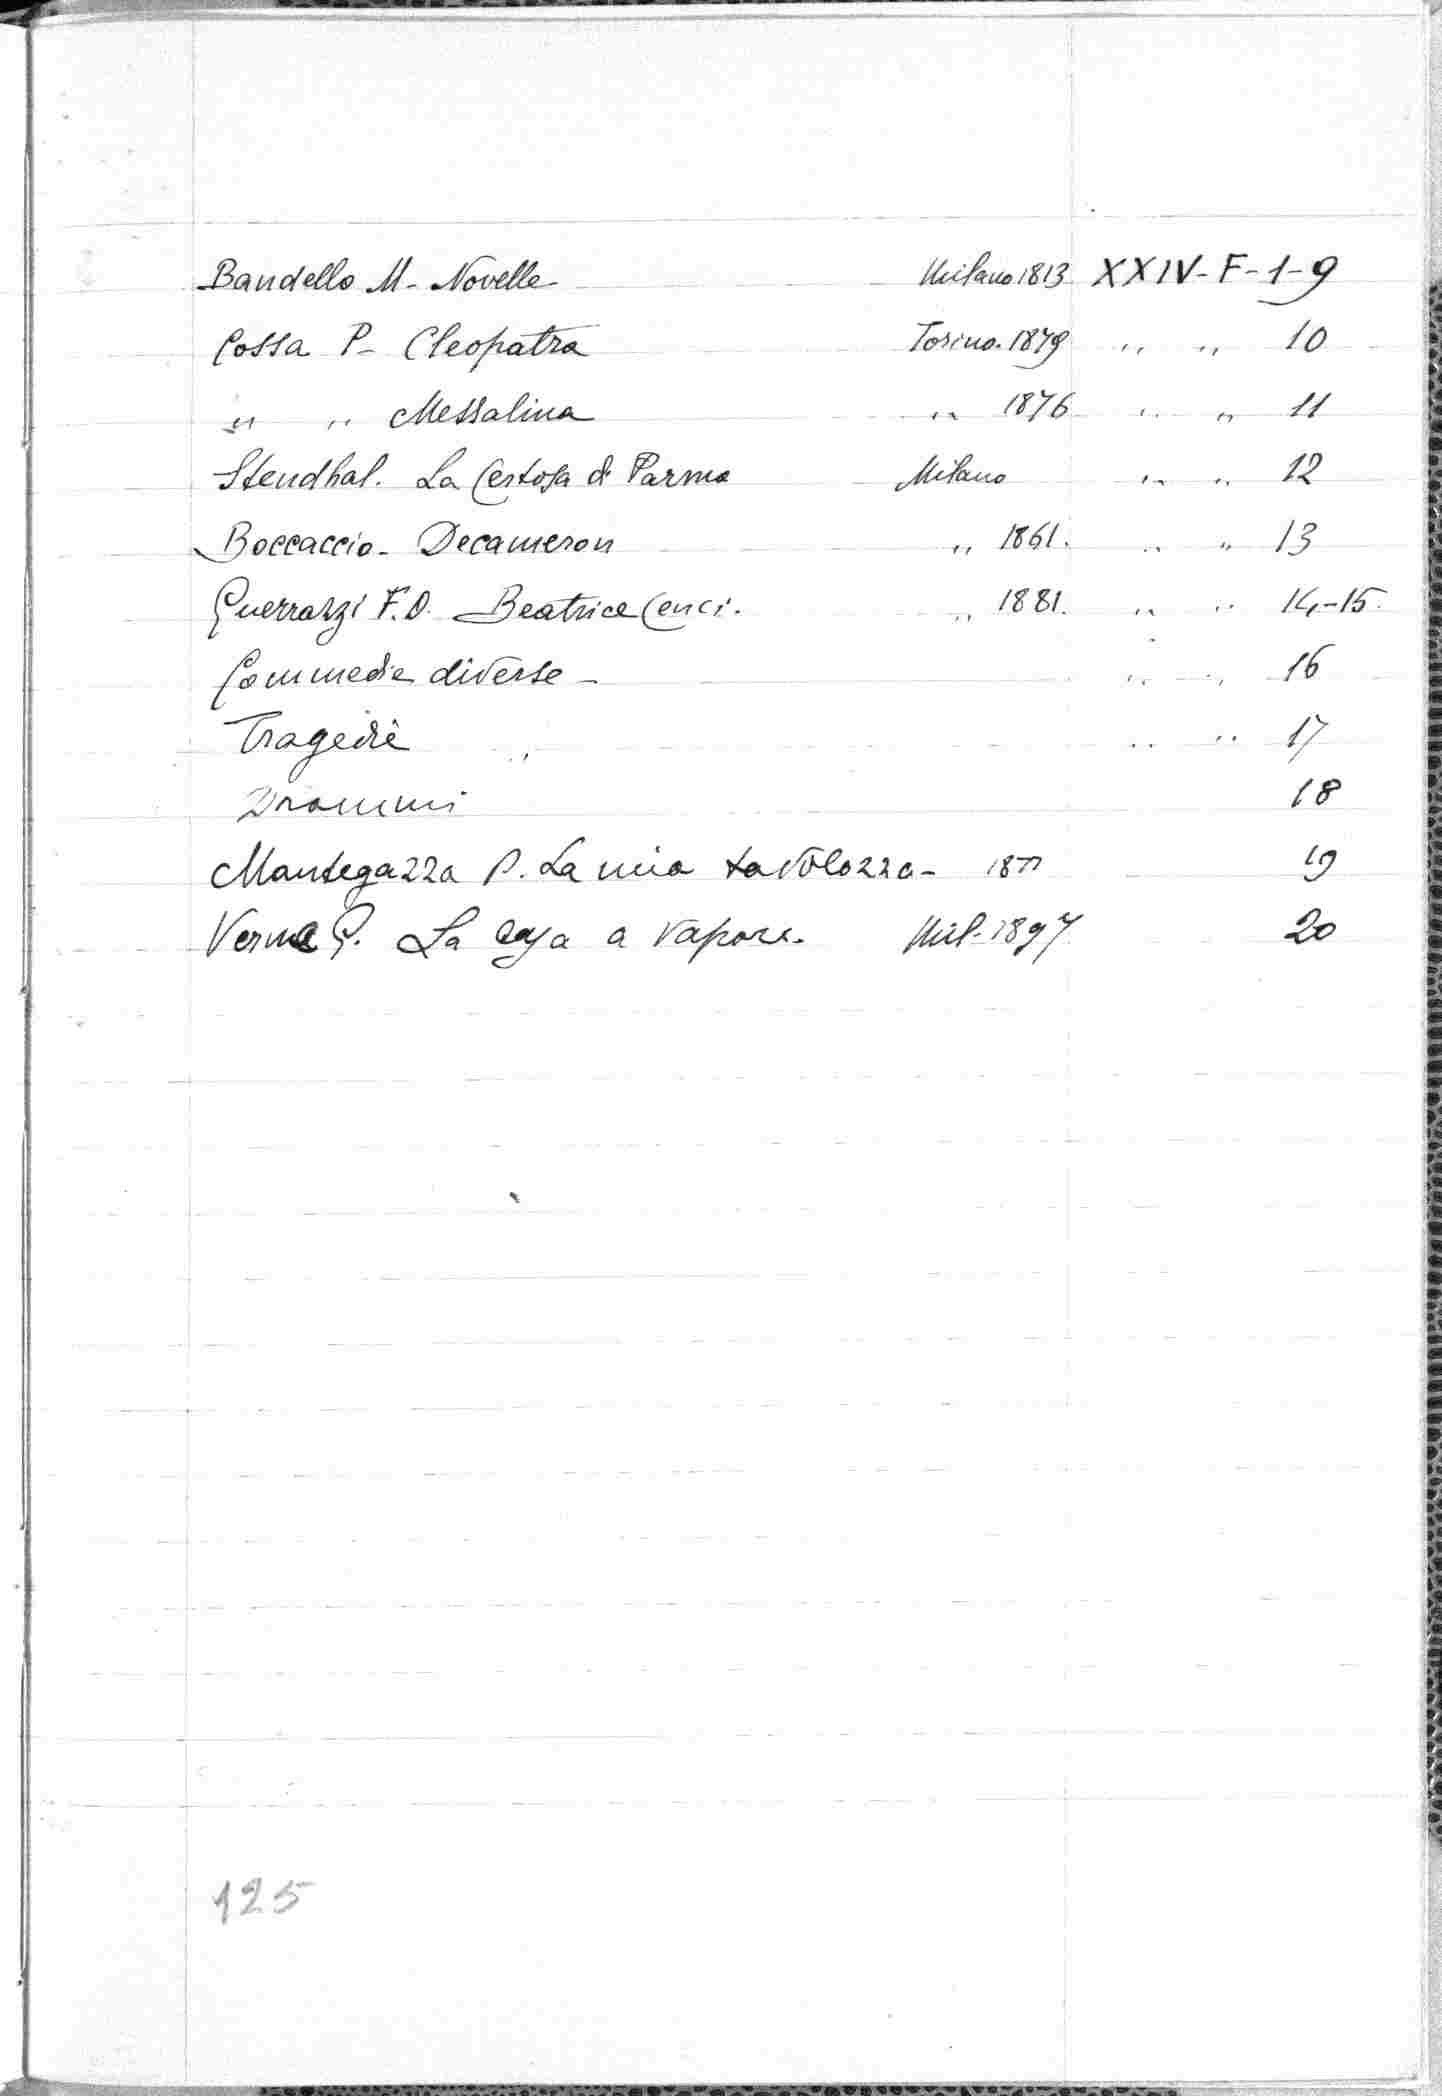 Bandello M. Novelle Milano 1813 XXIV-F-1-9
Cossa P- Cleopatra Torino. 1879 " " 10
" " Messalina " 1876 " " 11
Stendhal. La Certosa di Parma Milano " " 12
Boccaccio- Decameron " 1861. " " 13
Guerrazzi F.D. Beatrice Cenci. " 1881. " " 14-15.
Commedie diverse- " " 16
Tragedie " " " 17
Drammi 18
Mantegazza P. La mia tavolozza- 1877 19
Verne G. La casa a vapore. Mil-1897 20
125